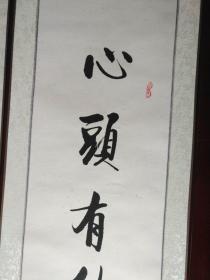 心頭有